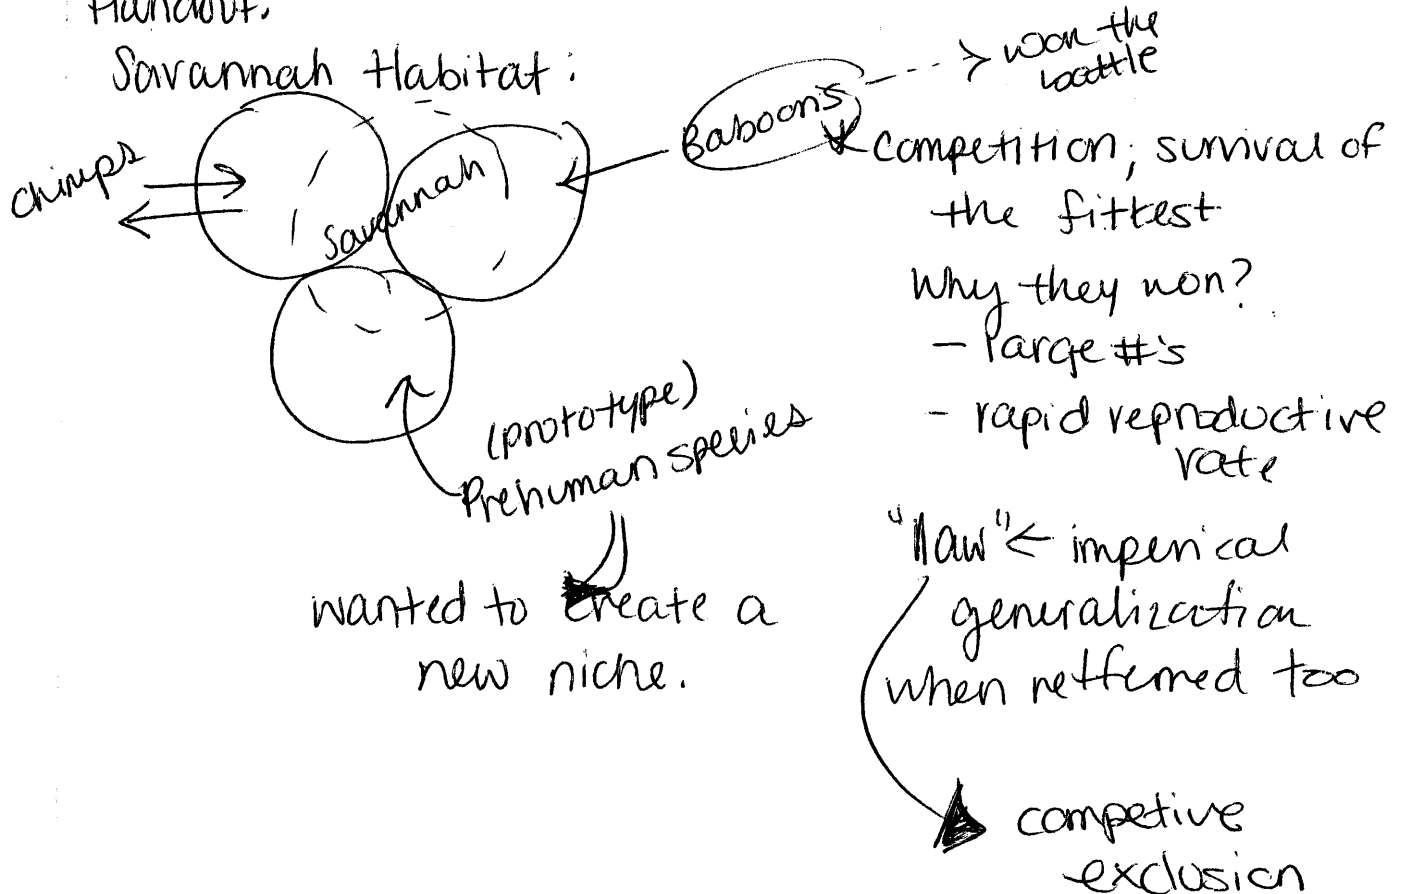 Handout:
Savannah Habitat:
Chimps
Savannah
Baboons
won the
battle
competition; survival of
the fittest
Why they won?
- large #'s
- rapid reproductive
rate
(prototype)
Prehuman species
wanted to create a
new niche.
"law" ← imperical
generalization
when refferred too
competive
exclusion